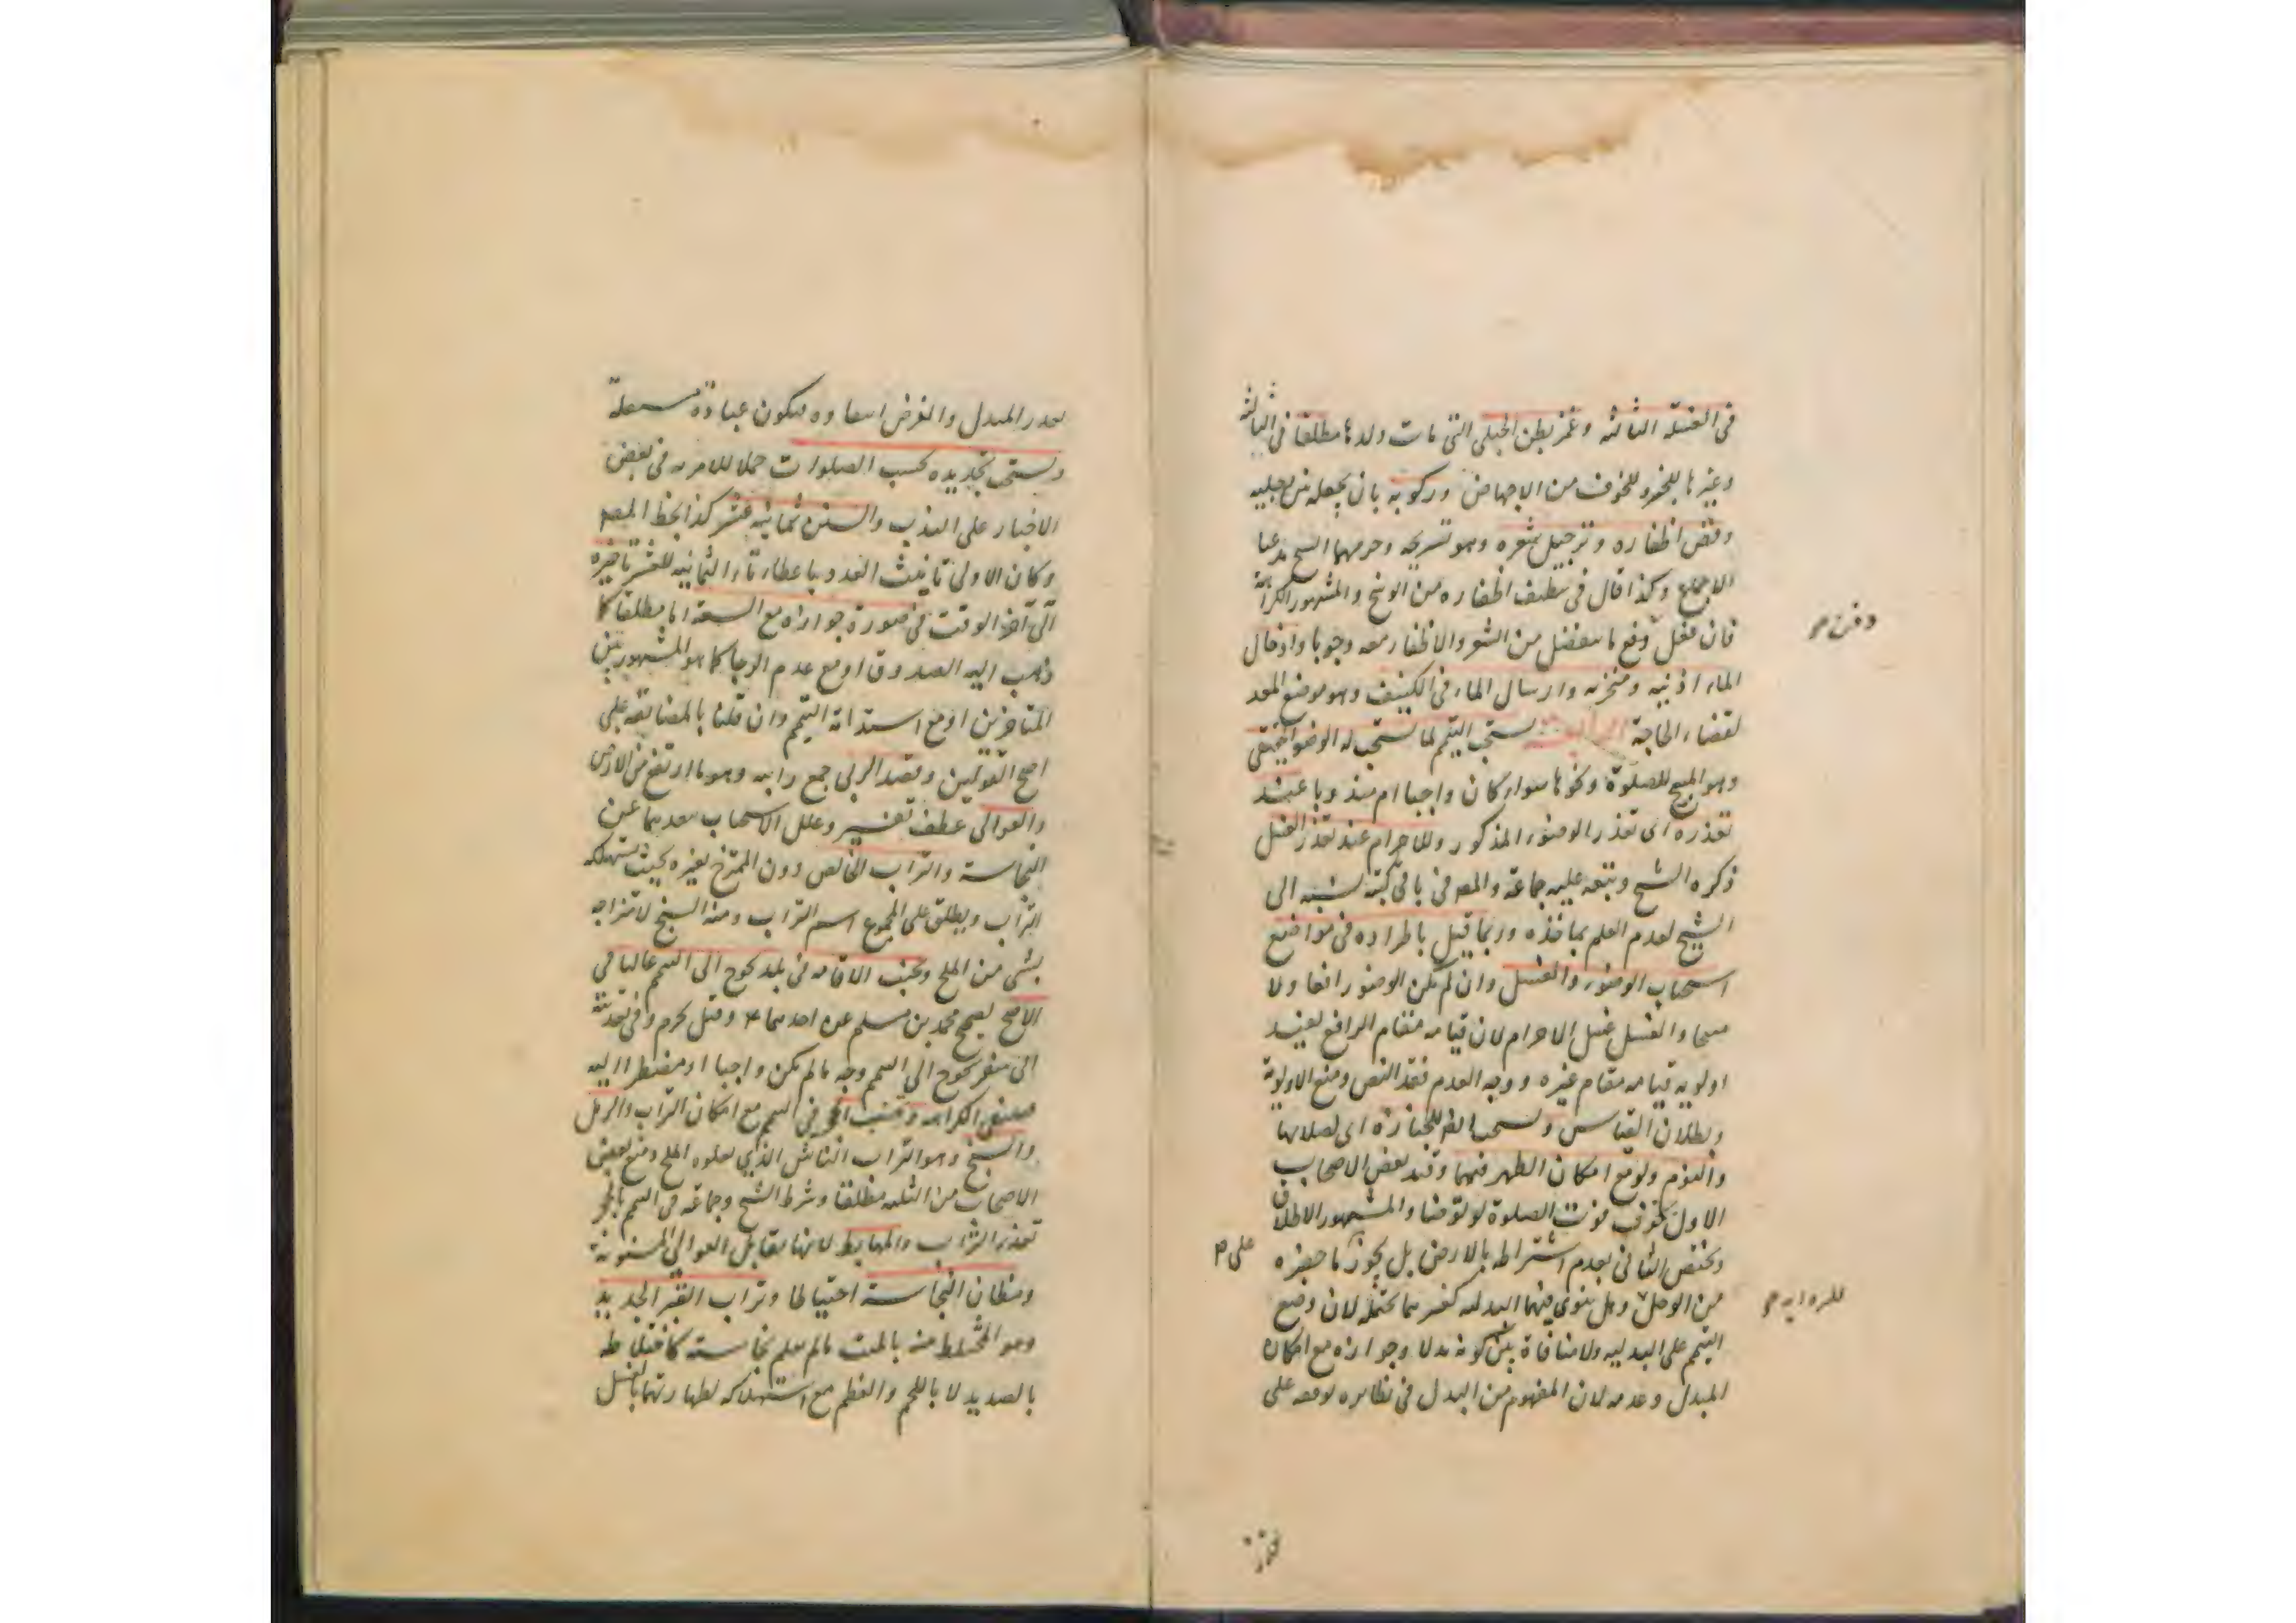 فى الغسلة الثالثه وغمز بطن الحبلى التى مات ولدها مطلقا فى الثالثه
وغيرها للخوف من الاجهاض وركوبه بان يجعله بين رجليه
وقص اظفاره وترجيل شعره وهو تسريحه وحرمهما الشيخ مدعيا
الاجماع وكذا قال فى تنظيف اظفاره من الوسخ والمشهور الكراهة
فان فعل دفع ما ينفصل من الشعر والاظفار معه وجوبا وادخال
دفن صح
الماء اذنيه ومنخريه وارسال الماء فى الكنيف وهو موضع المعد
لقضاء الحاجة يستحب التيمم لما يستحب له الوضوء الحقيقى
وهو المبيح للصلوة ونحوها سواء كان واجبا ام مندوبا عند
تعذره اى تعذر الوضوء المذكور وللاحرام عند تعذر الغسل
ذكره الشيخ وتبعه عليه جماعة والمص فى باقى كتبه نسبه الى
الشيخ لعدم العلم بماخذه وربما قيل باطراده فى مواضع
استحباب الوضوء والغسل وان لم يكن الوضوء رافعا ولا
مبيحا والغسل غسل الاحرام لان قيامه مقام الرافع يفيد
اولويه قيامه مقام غيره ووجه العدم فقد النص ومنع الاولوية
وبطلان القياس ويستحب ايضا للجنازة اى لصلاتها
والنوم ولو مع امكان الطهر فيهما وقيد بعض الاصحاب
الاول بخوف فوت الصلوة لو توضا والمشهور الاطلاق
ويختص الثانى بعدم اشتراطه بالارض بل يجوز بما حضره
على م
من الوحل وهل ينوى فيهما البدليه كغيرهما يحتمله لان وضع
للروايه صح
التيمم على البدليه ولا منافاة بين كونه بدلا وجوازه مع امكان
المبدل وعدمه لان المفهوم من البدل فى نظايره توقفه على
تعذر المبدل والفرض انتفاوه فيكون عبادة مستقلة
ويستحب تجديده بحسب الصلوات حملا للامر به فى بعض
الاخبار على الندب والسنن ثمانيه عشر كذا بخط المص
وكان الاولى تانيث العدد باعطاء تاء الثمانيه للعشر تاخيره
الى آخر الوقت فى صورة جوازه مع السعة اما مطلقا كما
ذهب اليه الصدوق او مع عدم الرجا كما هو المشهور بين
المتاخرين او مع استدامة التيمم وان قلنا بالمضايقه على
اصح القولين وقصد الربى جمع رابيه وهو ما ارتفع من الارض
والعوالى عطف تفسير وعلل الاستحباب ببعدهما عن
النجاسة والتراب الخالص دون الممتزج بغيره بحيث يستهلكه
التراب ويطلق على المجموع اسم التراب ومنه السبخ لامتزاجه
بشى من الملح وتجنب الاقامه فى بلد يحوج الى التيمم غالبا فى
الاصح لصحيح محمد بن مسلم عن احدهما ع وقيل يحرم وفى تعديته
الى سفر يحوج الى التيمم وجه ما لم يكن واجبا او مضطرا اليه
فينتفى الكراهه وتجنب الحجر فى التيمم مع امكان التراب والرمل
والسبخ وهو التراب الناشى الذى يعلوه الملح ومنع بعض
الاصحاب من الثلثه مطلقا وشرط الشيخ وجماعة فى التيمم بالحجر
تعذر التراب والمهابط لانها مقابل العوالى المسنونة
ومظان النجاسة احتياطا وتراب القبر الجديد
وهو المختلط منه بالميت ما لم يعلم نجاسته كاختلاطه
بالصديد لا باللحم والعظم مع استهلاكه لطهارتهما بالغسل